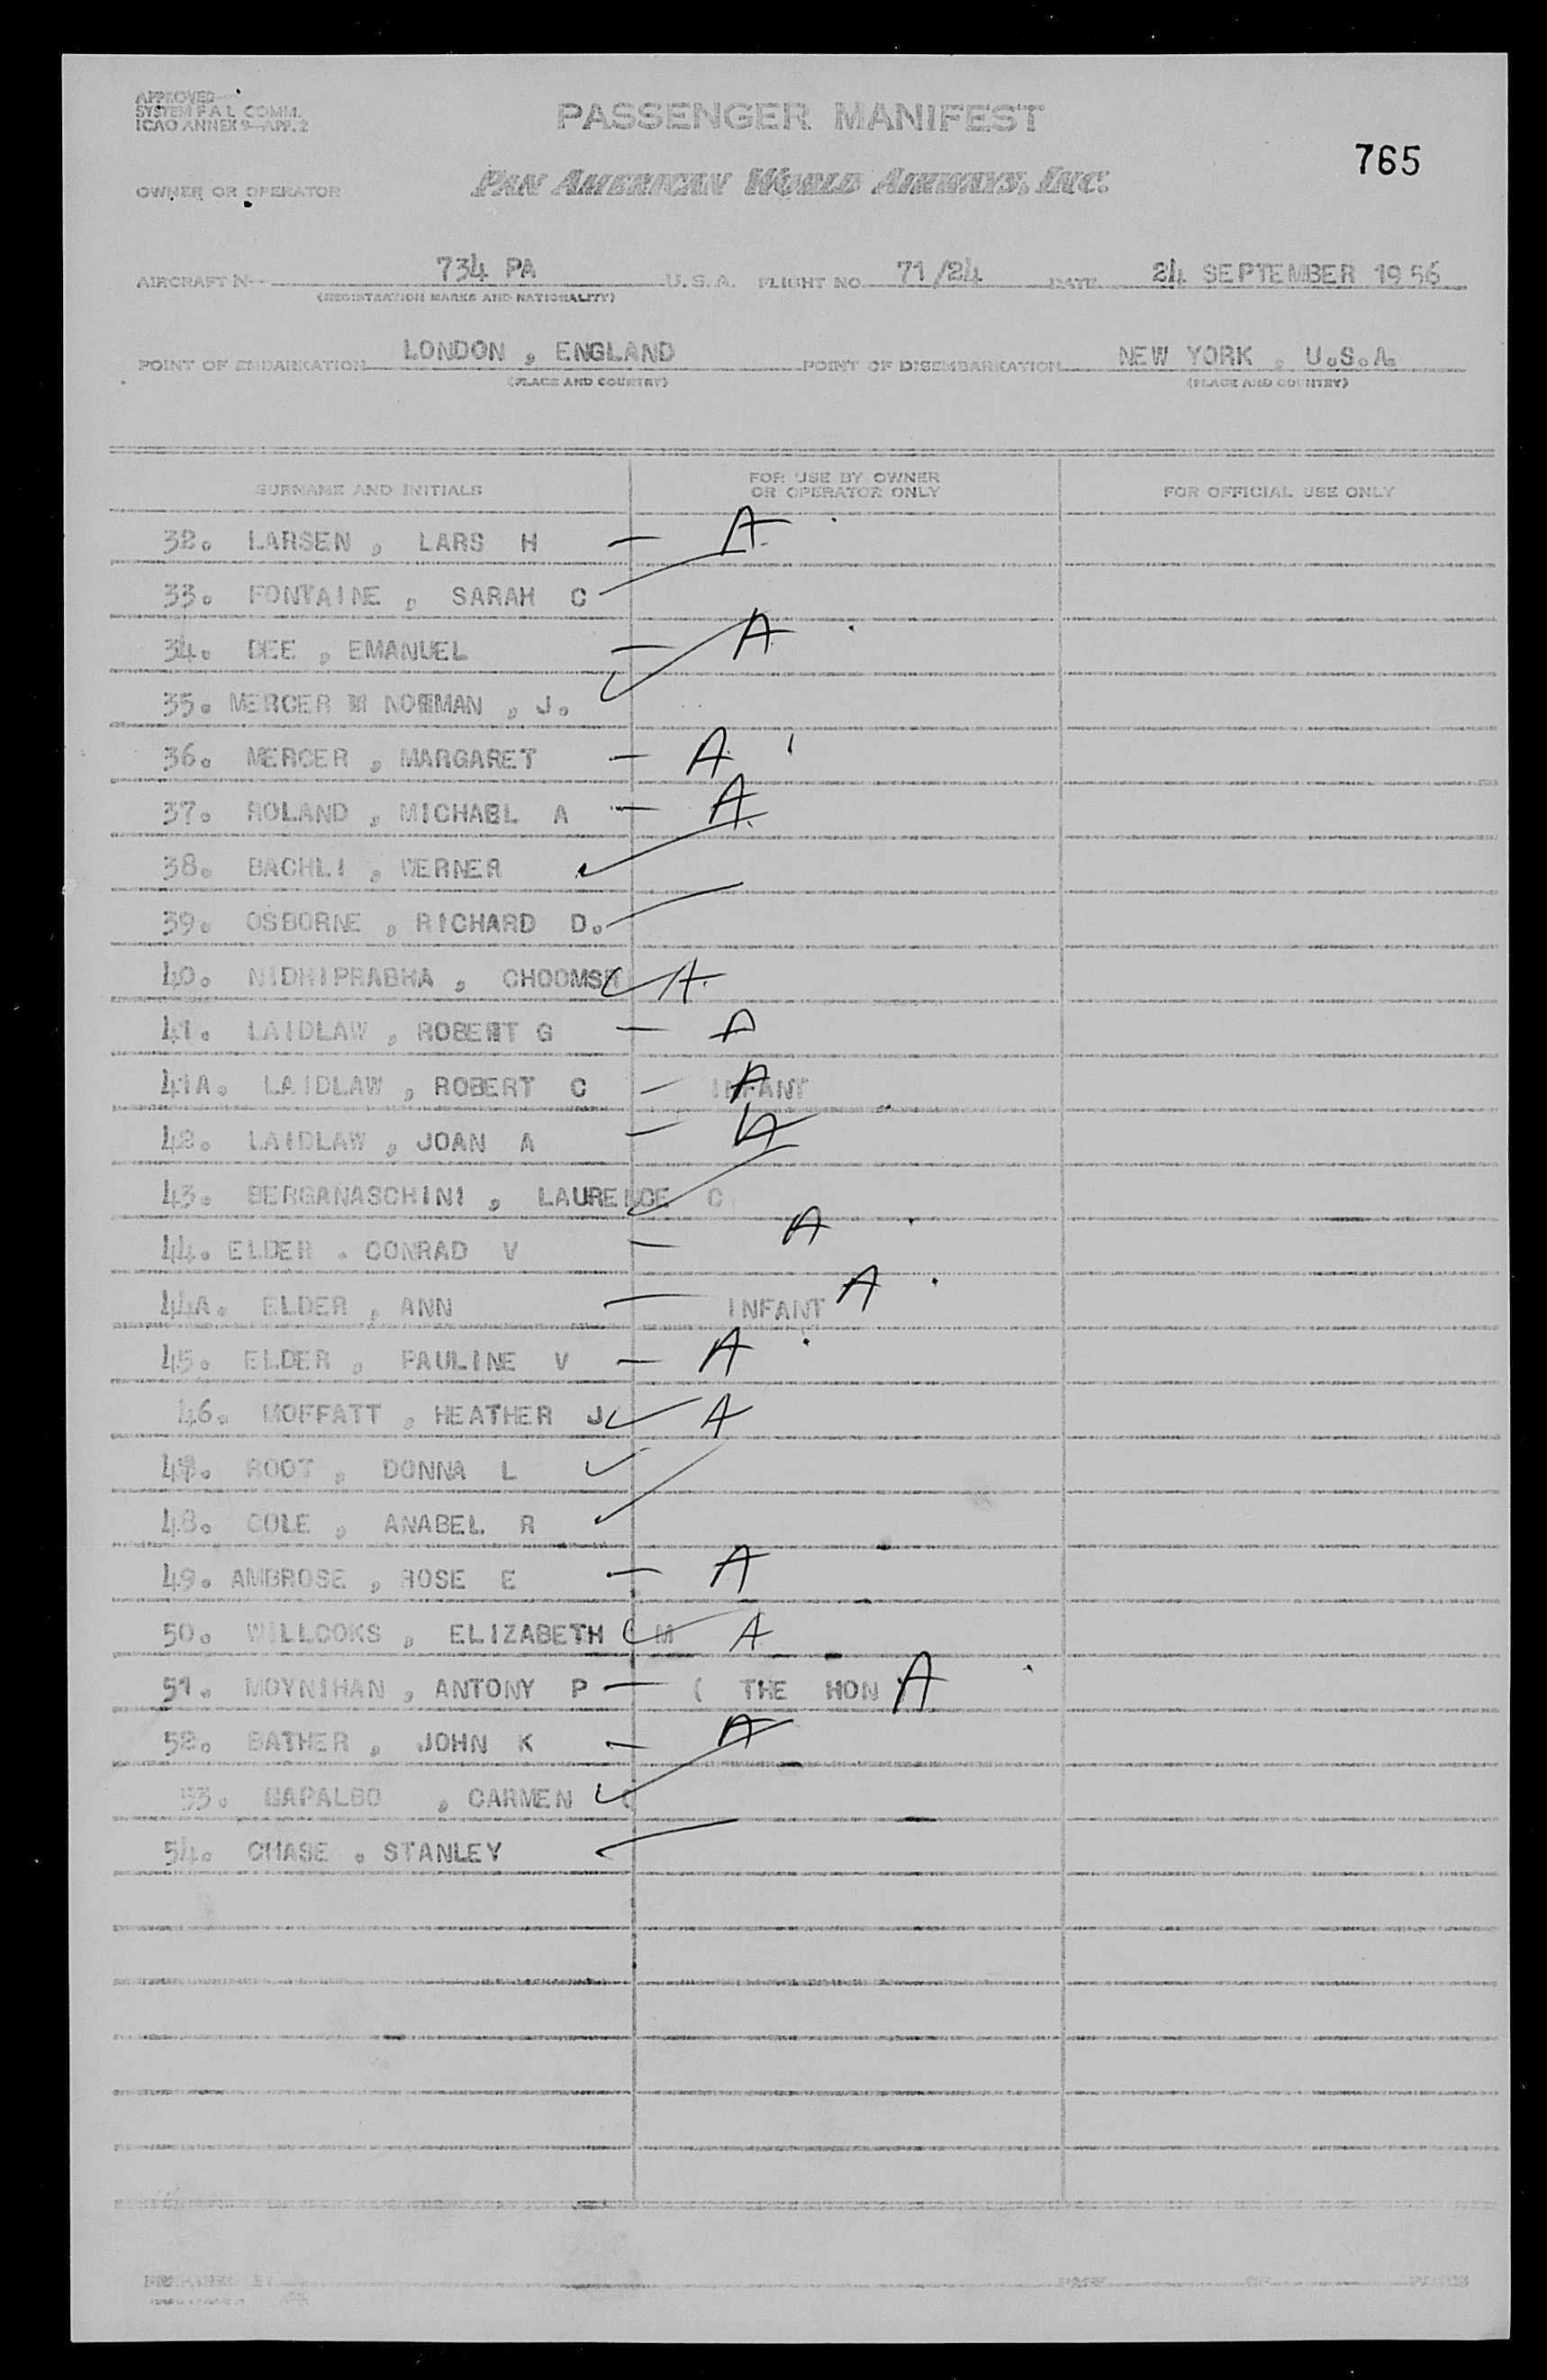 APPROVED
SYSTEM F A L COMM.
ICAO ANNEX 9—APP. 2
PASSENGER MANIFEST
765
OWNER OR OPERATOR
PAN AMERICAN WORLD AIRWAYS, INC.
AIRCRAFT N 734 PA U. S. A. FLIGHT NO. 71/24 DATE 24 SEPTEMBER 1956
(REGISTRATION MARKS AND NATIONALITY)
POINT OF EMBARKATION LONDON , ENGLAND POINT OF DISEMBARKATION NEW YORK , U.S.A.
(PLACE AND COUNTRY) (PLACE AND COUNTRY)
SURNAME AND INITIALS FOR USE BY OWNER OR OPERATOR ONLY FOR OFFICIAL USE ONLY
32. LARSEN , LARS H — A
33. FONTAINE , SARAH C
34. DEE , EMANUEL — A
35. MERCER NORMAN , J.
36. MERCER , MARGARET — A
37. ROLAND , MICHAEL A — A
38. BACHLI , WERNER
39. OSBORNE , RICHARD D.
40. NIDHIPRABHA , A
41. LAIDLAW , ROBERT G — A
41A. LAIDLAW , ROBERT C — INFANT A
42. LAIDLAW , JOAN A — A
43. BERGANASCHINI , LAURENCE C
44. ELDER . CONRAD V — A
44A. ELDER , ANN — INFANT A
45. ELDER , PAULINE V — A
46. MOFFATT , HEATHER J A
47. ROOT , DONNA L
48. COLE , ANABEL R
49. AMBROSE , ROSE E — A
50. WILLCOKS , ELIZABETH M A
51. MOYNIHAN , ANTONY P — ( THE HON A
52. BATHER , JOHN K — A
53. , CARMEN C
54. CHASE . STANLEY
PAGE OF PAGES